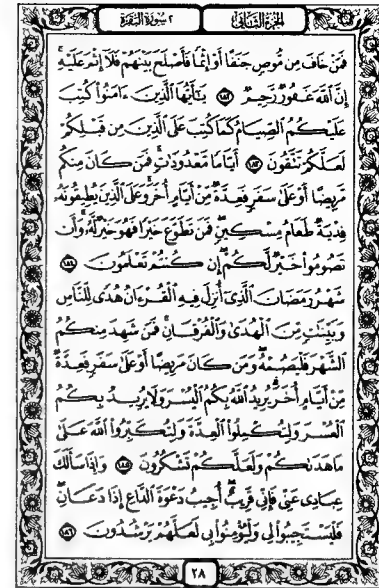 الجزء الثاني ٢ سورة البقرة
فَمَنْ خَافَ مِن مُّوصٍ جَنَفًا أَوْ إِثْمًا فَأَصْلَحَ بَيْنَهُمْ فَلَا إِثْمَ عَلَيْهِ
إِنَّ اللَّهَ غَفُورٌ رَّحِيمٌ ١٨٢ يَا أَيُّهَا الَّذِينَ ءَامَنُوا كُتِبَ
عَلَيْكُمُ الصِّيَامُ كَمَا كُتِبَ عَلَى الَّذِينَ مِن قَبْلِكُمْ
لَعَلَّكُمْ تَتَّقُونَ ١٨٣ أَيَّامًا مَّعْدُودَاتٍ فَمَن كَانَ مِنكُم
مَّرِيضًا أَوْ عَلَى سَفَرٍ فَعِدَّةٌ مِّنْ أَيَّامٍ أُخَرَ وَعَلَى الَّذِينَ يُطِيقُونَهُ
فِدْيَةٌ طَعَامُ مِسْكِينٍ فَمَن تَطَوَّعَ خَيْرًا فَهُوَ خَيْرٌ لَّهُ وَأَن
تَصُومُوا خَيْرٌ لَّكُمْ إِن كُنتُمْ تَعْلَمُونَ ١٨٤
شَهْرُ رَمَضَانَ الَّذِي أُنزِلَ فِيهِ الْقُرْءَانُ هُدًى لِّلنَّاسِ
وَبَيِّنَاتٍ مِّنَ الْهُدَى وَالْفُرْقَانِ فَمَن شَهِدَ مِنكُمُ
الشَّهْرَ فَلْيَصُمْهُ وَمَن كَانَ مَرِيضًا أَوْ عَلَى سَفَرٍ فَعِدَّةٌ
مِّنْ أَيَّامٍ أُخَرَ يُرِيدُ اللَّهُ بِكُمُ الْيُسْرَ وَلَا يُرِيدُ بِكُمُ
الْعُسْرَ وَلِتُكْمِلُوا الْعِدَّةَ وَلِتُكَبِّرُوا اللَّهَ عَلَى
مَا هَدَىكُمْ وَلَعَلَّكُمْ تَشْكُرُونَ ١٨٥ وَإِذَا سَأَلَكَ
عِبَادِي عَنِّي فَإِنِّي قَرِيبٌ أُجِيبُ دَعْوَةَ الدَّاعِ إِذَا دَعَانِ
فَلْيَسْتَجِيبُوا لِي وَلْيُؤْمِنُوا بِي لَعَلَّهُمْ يَرْشُدُونَ ١٨٦
٢٨